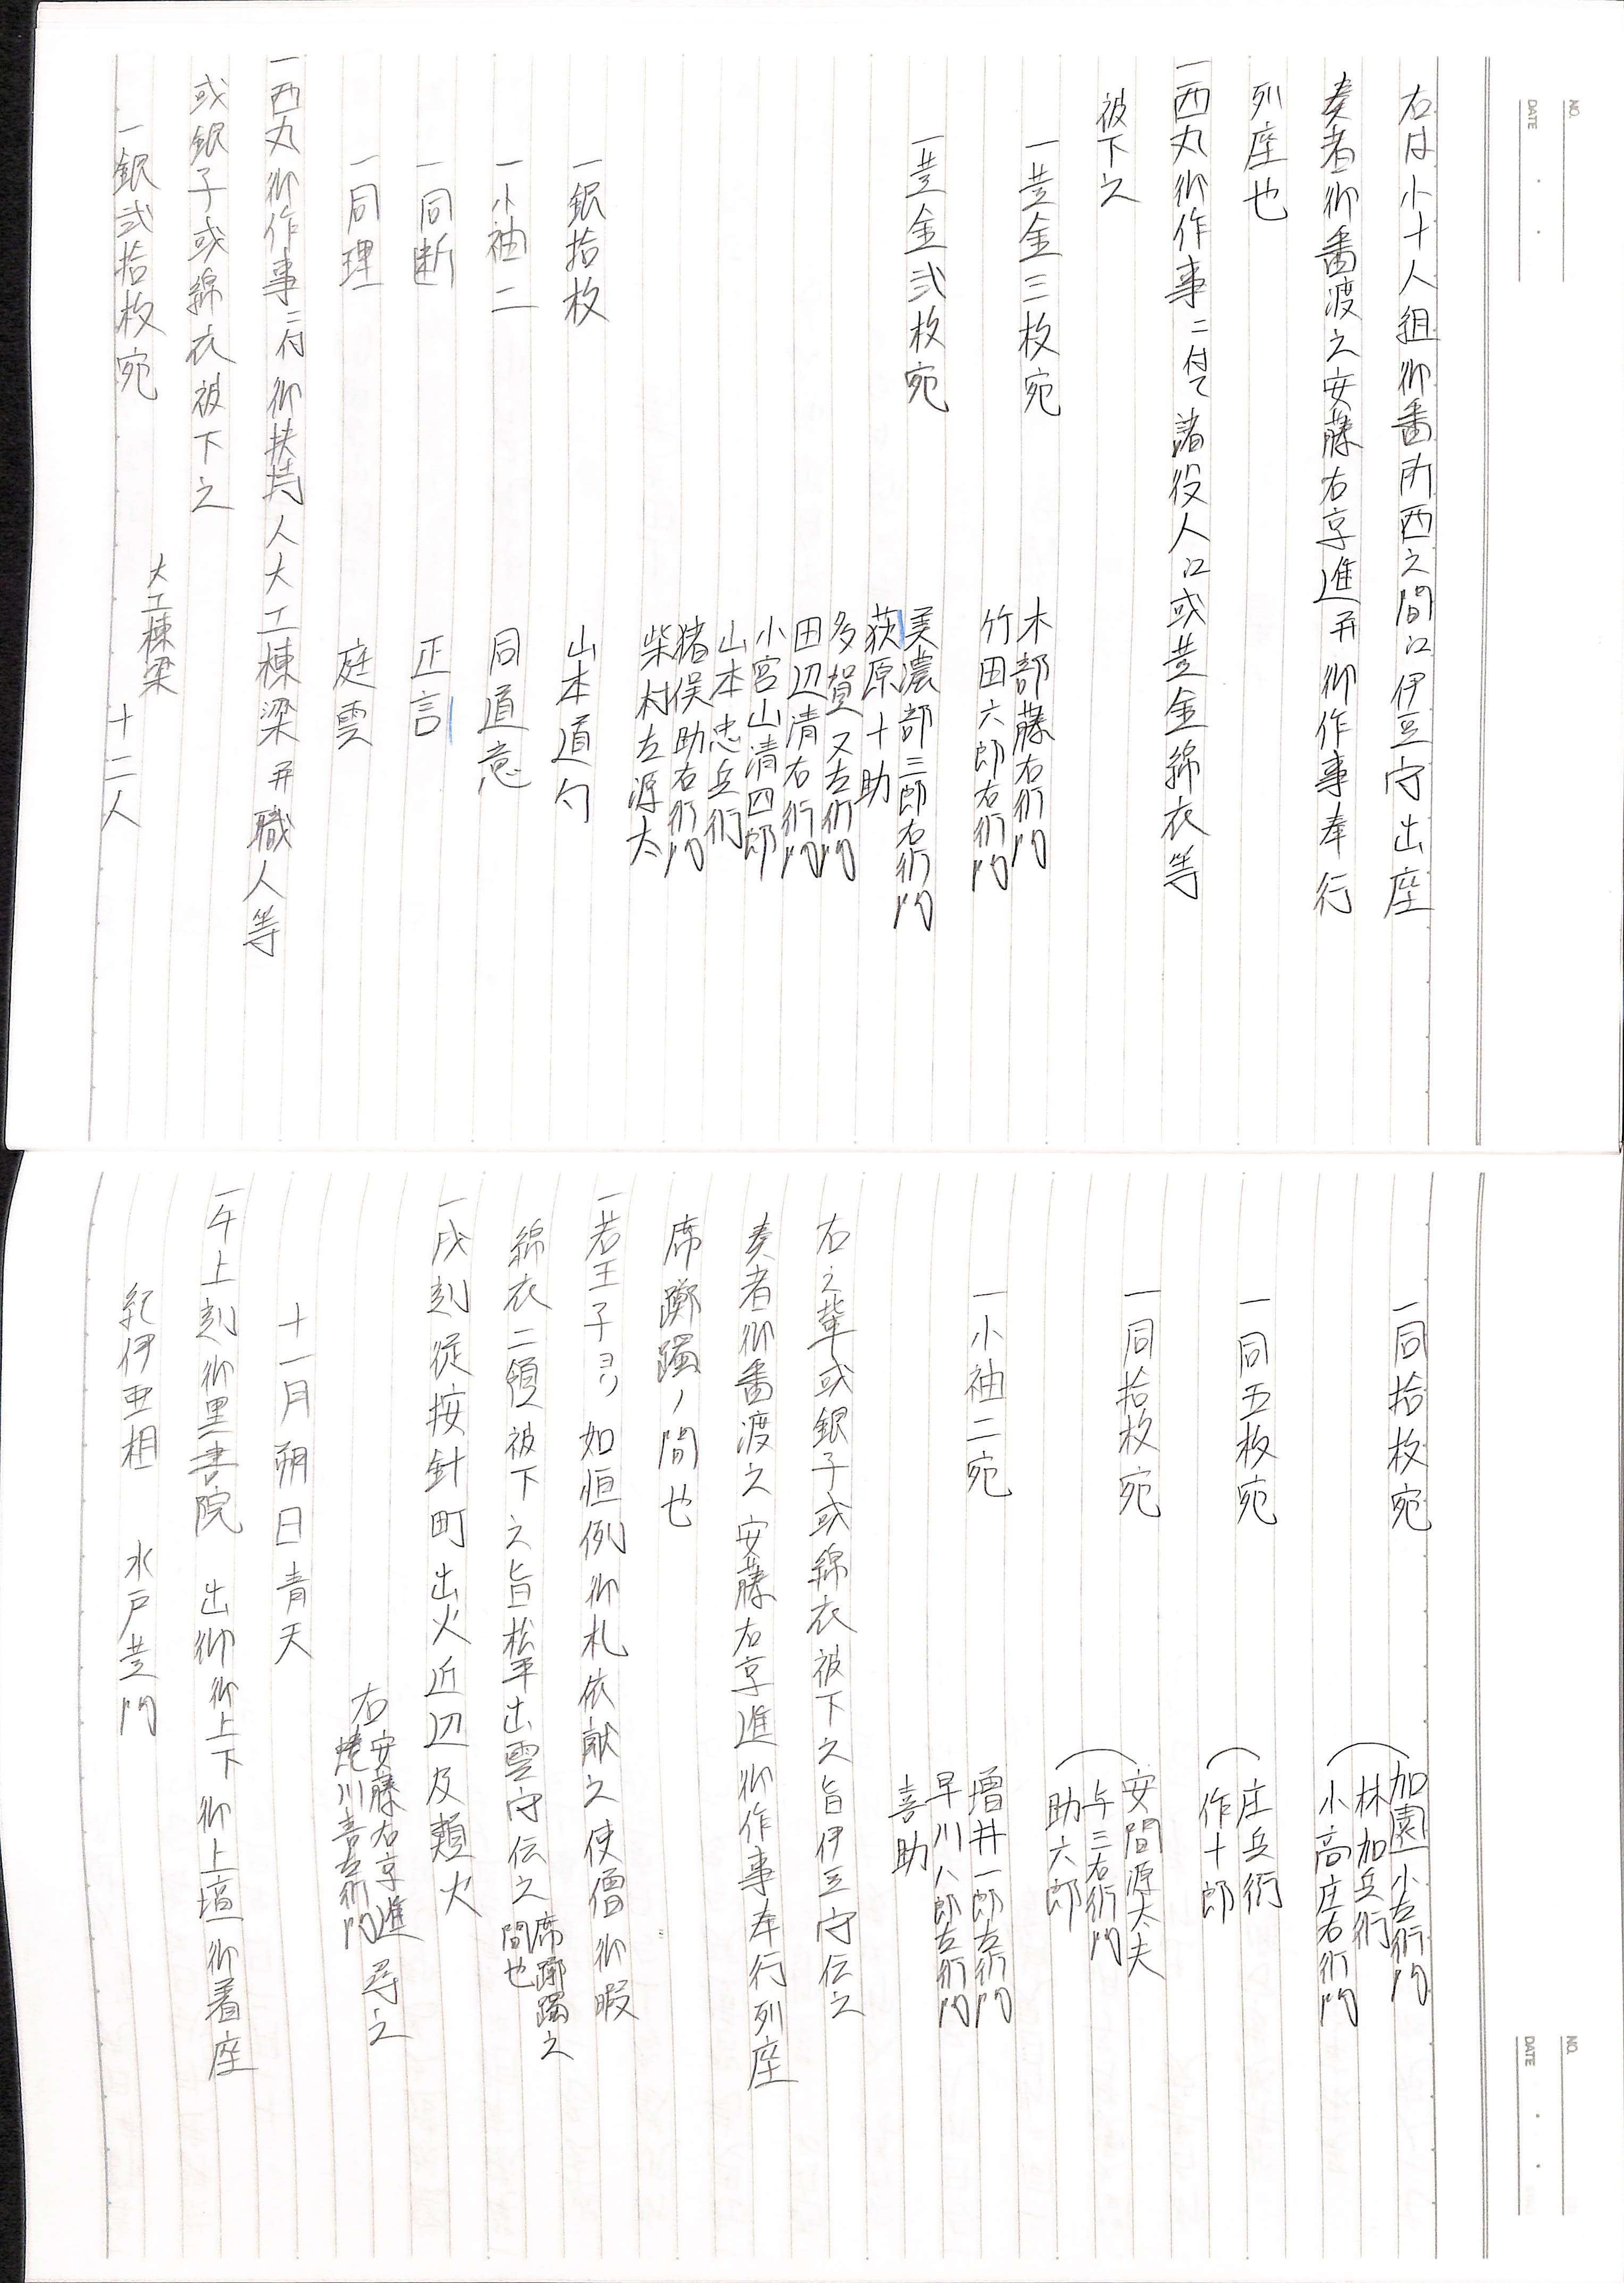 NO.
DATE
右は小十人組御番所西之間江伊豆守出座
奏者御番渡之安藤右京進并御作事奉行
列座也
一西丸御作事ニ付て諸役人江或黄金綿衣等
被下之
一黄金三枚宛
木部藤右衛門
竹田六郎右衛門
一黄金弐枚宛
美濃部三郎右衛門
荻原十助
多賀又左衛門
田辺清右衛門
小宮山清四郎
山本忠兵衛
猪俣助右衛門
柴村左源太
一銀拾枚
山本道勺
一小袖二
同道意
一同断
正言
一同理
庭雲
一西丸御作事ニ付御扶持人大工棟梁并職人等
或銀子或綿衣被下之
大工棟梁
一銀弐拾枚宛
十二人
NO.
DATE
一同拾枚宛
加園小左衛門
林加兵衛
小高庄右衛門
一同五枚宛
庄兵衛
作十郎
一同拾枚宛
安間源太夫
与三右衛門
助六郎
一小袖二宛
増井一郎左衛門
早川八郎左衛門
喜助
右之輩或銀子或綿衣被下之旨伊豆守伝之
奏者御番渡之安藤右京進御作事奉行列座
席躑躅ノ間也
一若王子ヨリ如恒例御札依献之使僧御暇
綿衣二領被下之旨松平出雲守伝之席躑躅之
間也
一戌刻従按針町出火近辺及類火
右安藤右京進
蜷川喜左衛門尋之
十一月朔日青天
一午上刻御黒書院 出御御上下御上壇御着座
紀伊亜相 水戸黄門